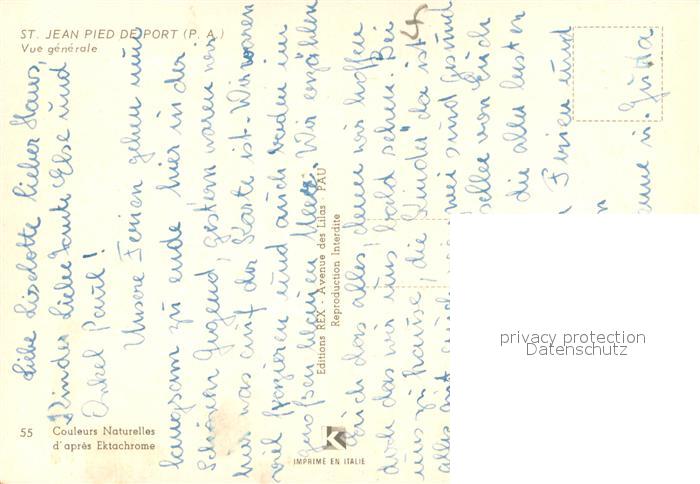 ST. JEAN PIED DE PORT (P. A.)
Vue générale
Liebe Liselotte lieber Klaus,
Kinder liebe Tante Else und
Onkel Paul!
Unsere Ferien gehen nun
langsam zu ende hier in der
schönen Gegend, gestern waren wir
hier was auf der Karte ist. Wir waren
viel spazieren und auch baden im
großen kleinen Meer. Wir erzählen
Euch das alles, denn wir hoffen
doch das wir uns bald sehen. Bei
uns zu hause, die Kinder da ist
alles gut und gesund
von Euch
die aller besten
Ferien und
Editions REX - Avenue des Lilas PAU
Reproduction Interdite
55 Couleurs Naturelles
d'après Ektachrome
K
IMPRIMÉ EN ITALIE
privacy protection
Datenschutz